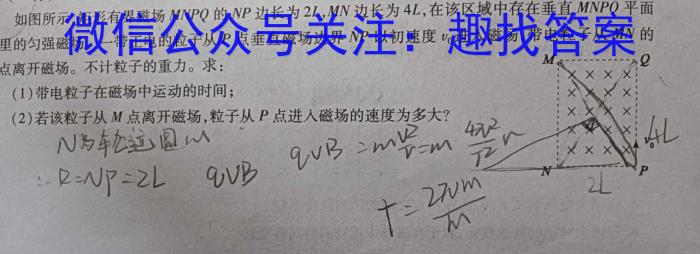 如图所示,矩形有界磁场MNPQ的NP边长为2L,MN边长为4L,在该区域中存在垂直MNPQ平面
里的匀强磁场,一带电的粒子从P点垂直磁场边界NP以初速度v₀进入磁场,带电粒子从MN的
点离开磁场。不计粒子的重力。求:
微信公众号关注:趣找答案
(1)带电粒子在磁场中运动的时间;
(2)若该粒子从M点离开磁场,粒子从P点进入磁场的速度为多大?
M Q
v₀ 4L
N P
2L
N为轨迹圆
∴R=NP=2L qvB
qvB=m v²/r=m 4π²/T² r
T=2πm